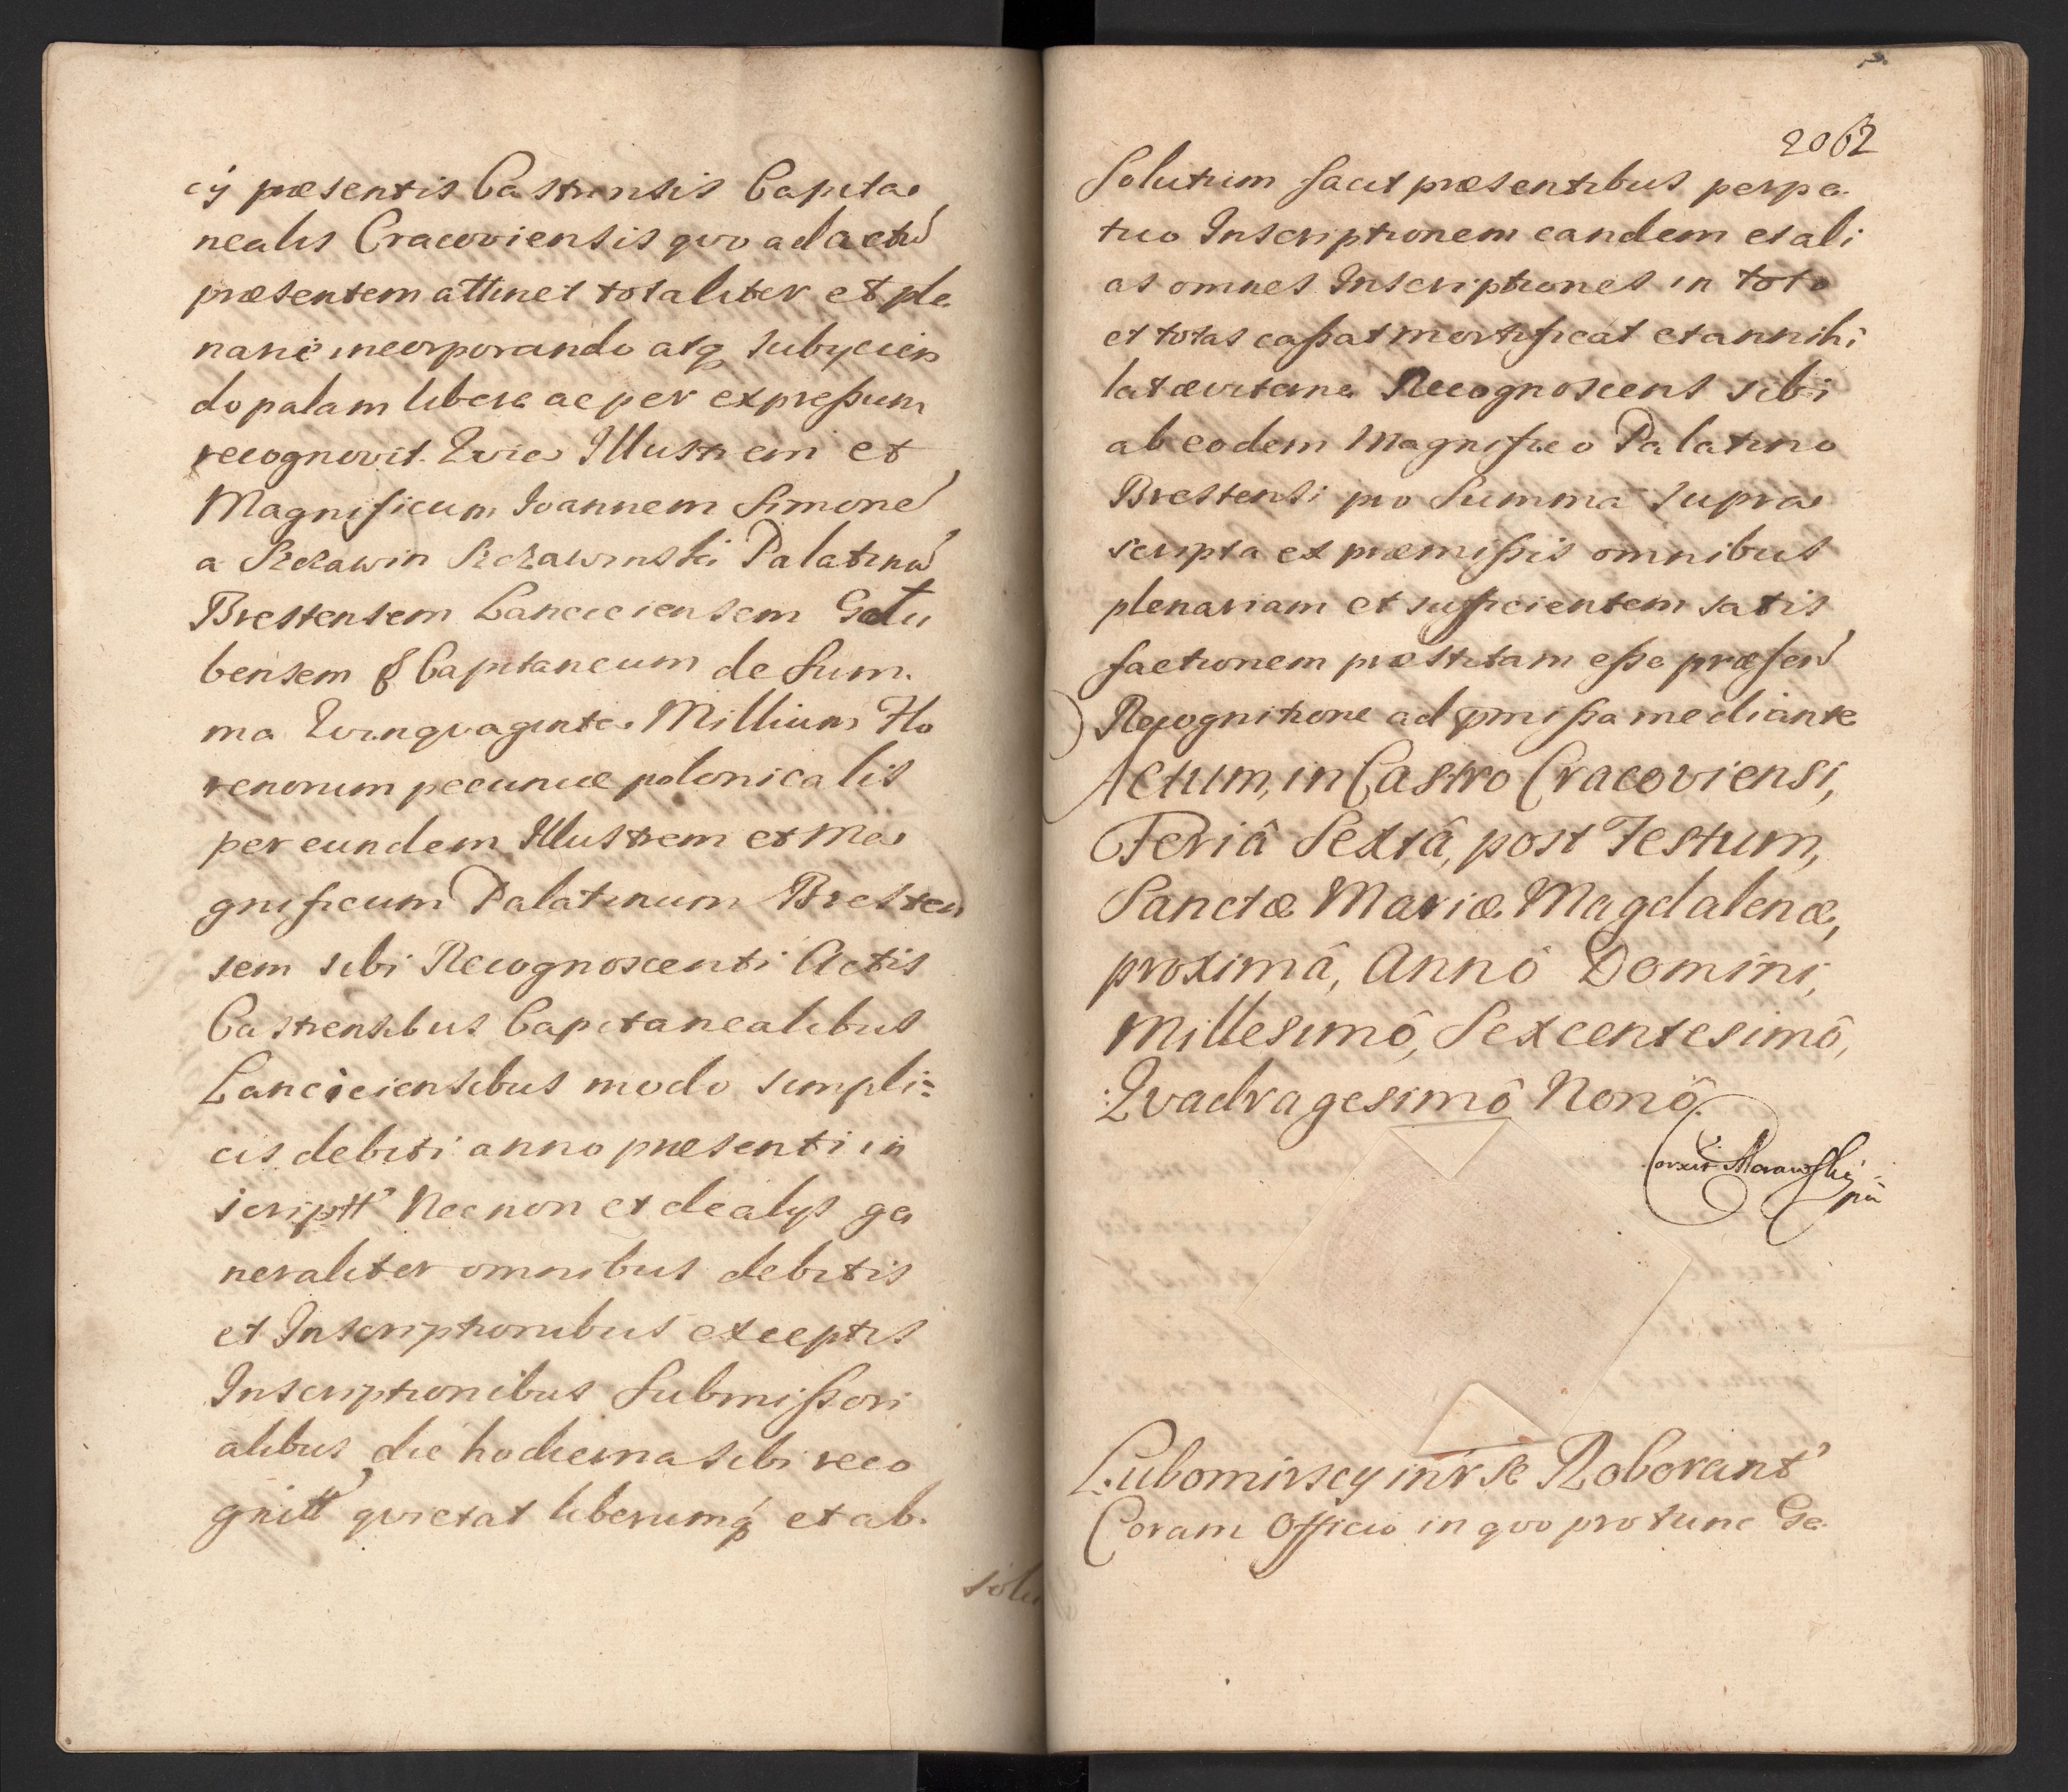 cÿ præsentis Castrensis Capita
nealis Cracoviensis quo ad actū
præsentem attinet totaliter et ple
nariè incorporando atq subycien
do palam libere ac per expreßum
recognovit. Quia Illustrem et
Magnificum Ioannem Simonē
a Szczawin Szczawinski Palatinū
Brestensem Lanciciensem Gatu
bensem & Capitaneum de Sum.
ma Quinquaginta Millium Flo
renorum pecuniæ polonicalis
per eundem Illustrem et Ma
gnificum Palatinum Bresten
sem sibi Recognoscenti Actis
Castrensibus Capitanealibus
Lanciciensibus modo simpli=
cis debiti anno præsenti in
scriptt Nec non et de alys ge
neraliter omnibus debitis
et Inscriptionibus exceptis
Inscriptionibus Submißori
alibus die hodierna sibi reco
gnitt quietat liberumq et ab.
solu
2062
Solutum facit præsentibus perpe.
tuo Inscriptionem eandem et ali
as omnes Inscriptiones in toto
et totas caßat mortificat et annihi
lat æviterne Recognoscens sibi
ab eodem Magnifico Palatino
Brestensi pro Summa supra
scripta ex præmißis omnibus
plenariam et sufficientem satis
factionem præstitam eße præsen
Recognitione ad pmißa mediante
Actum, in Castro Cracoviensi,
Feriâ Sextâ, post Festum,
Sanctæ Mariæ Magdalenæ,
proximâ, Annô Domini,
Millesimô, Sexcentesimô,
Quadragesimô Nonô.
Correxit Morawski
pm
Lubomirscy intr se Roborant
Coram Officio in quo pro tunc Ge.